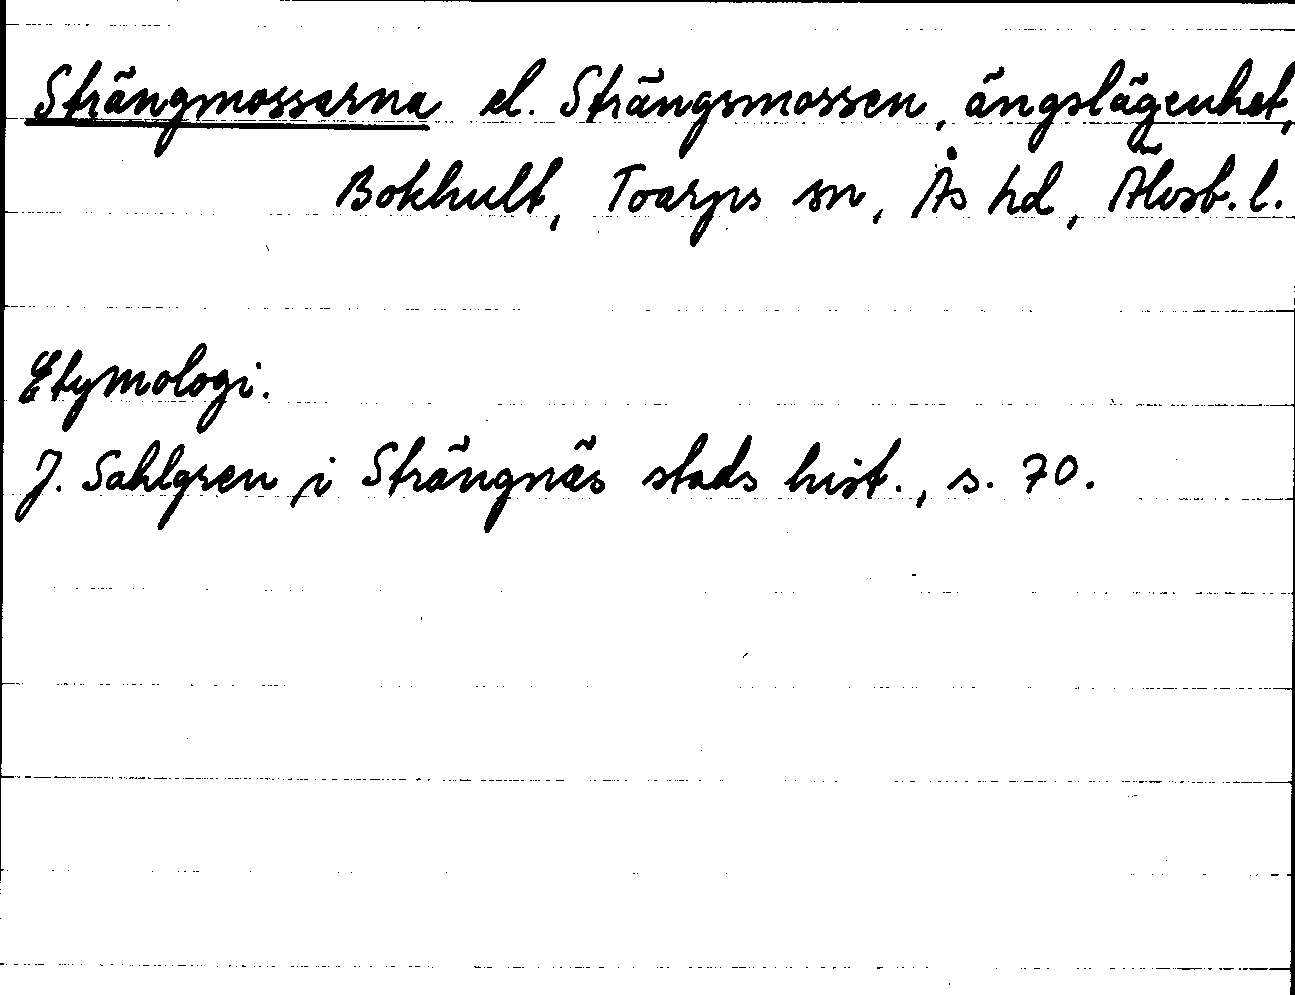 Strängmossarna el. Strängsmossen, ängslägenhet,
Bokhult, Toarps sn, Ås hd, Älvsb. l.
Etymologi.
J. Sahlgren i Strängnäs stads hist., s. 70.